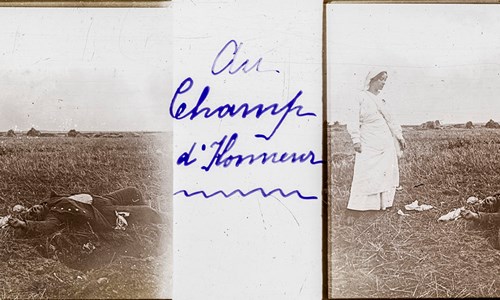 Au
Champ
d'Honneur